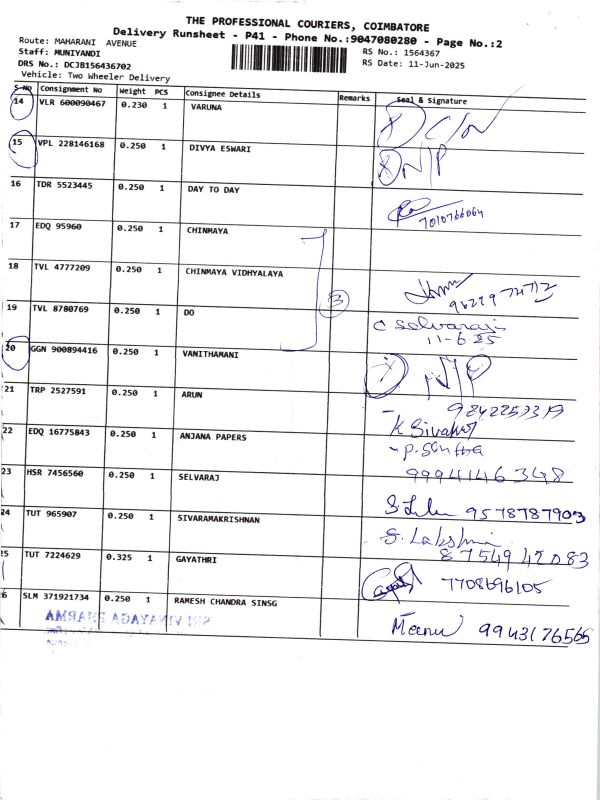 THE PROFESSIONAL COURIERS, COIMBATORE
Delivery Runsheet - P41 - Phone No.:9047080280 - Page No.:2
Route: MAHARANI AVENUE
Staff: MUNIYANDI
DRS No.: DCJB156436702
Vehicle: Two Wheeler Delivery
RS No.: 1564367
RS Date: 11-Jun-2025
S No Consignment No Weight PCS Consignee Details Remarks Seal & Signature
14 VLR 600090467 0.230 1 VARUNA X
15 VPL 228146168 0.250 1 DIVYA ESWARI X N/P
16 TDR 5523445 0.250 1 DAY TO DAY 7010766064
17 EDQ 95960 0.250 1 CHINMAYA
18 TVL 4777209 0.250 1 CHINMAYA VIDHYALAYA
19 TVL 8780769 0.250 1 DO 3 C Selvaraj
11-6.25
20 GGN 900894416 0.250 1 VANITHAMANI X N/P
21 TRP 2527591 0.250 1 ARUN 9842253319
22 EDQ 16775843 0.250 1 ANJANA PAPERS
9994146348
23 HSR 7456560 0.250 1 SELVARAJ 9578787903
24 TUT 965907 0.250 1 SIVARAMAKRISHNAN S. Lakshmi
8754942083
25 TUT 7224629 0.325 1 GAYATHRI 7708696105
6 SLM 371921734 0.250 1 RAMESH CHANDRA SINSG Meenu 9943176565
SRI VINAYAGA PHARMA